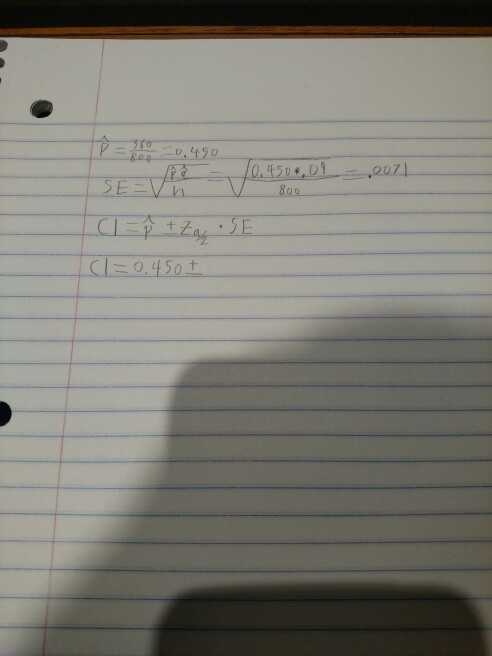 p̂ = 360/800 = 0.450
SE = √(p̂q̂/n) = √(0.450*.09/800) = .0071
CI = p̂ ± Zα/2 · SE
CI = 0.450 ±